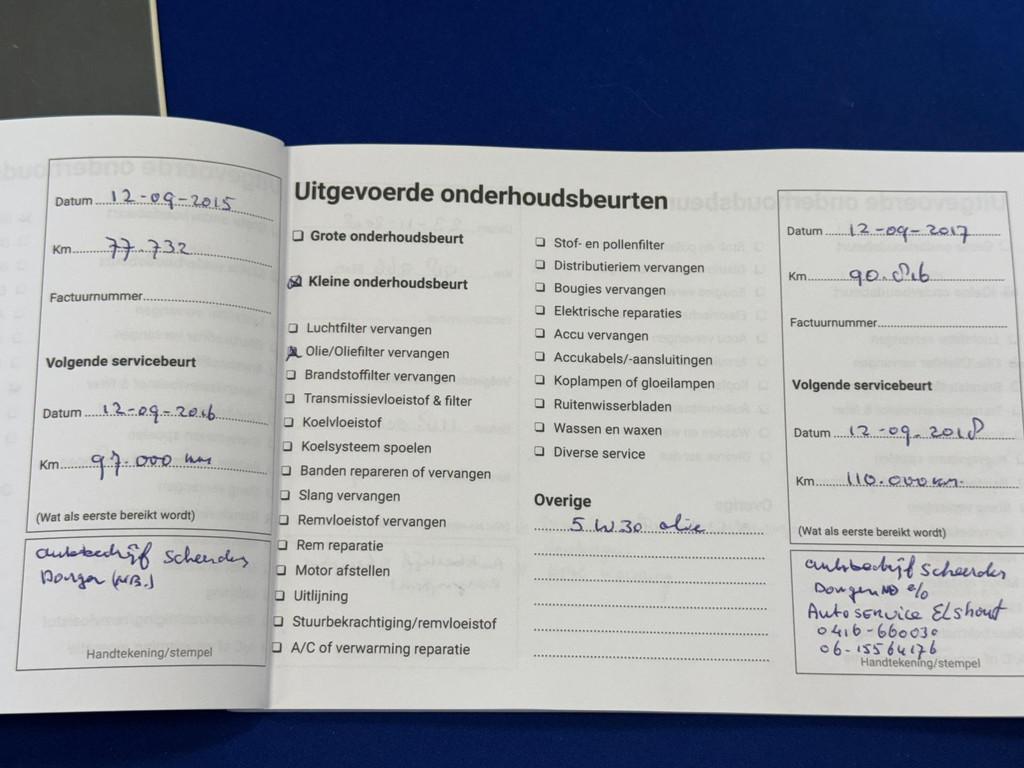 Datum 12-09-2015
Km 77.732
Factuurnummer
Volgende servicebeurt
Datum 12-09-2016
Km 97.000 km
(Wat als eerste bereikt wordt)
autobedrijf Scheerders
Dongen (NB.)
Handtekening/stempel
Uitgevoerde onderhoudsbeurten
Grote onderhoudsbeurt
Kleine onderhoudsbeurt
Luchtfilter vervangen
Olie/Oliefilter vervangen
Brandstoffilter vervangen
Transmissievloeistof & filter
Koelvloeistof
Koelsysteem spoelen
Banden repareren of vervangen
Slang vervangen
Remvloeistof vervangen
Rem reparatie
Motor afstellen
Uitlijning
Stuurbekrachtiging/remvloeistof
A/C of verwarming reparatie
Stof- en pollenfilter
Distributieriem vervangen
Bougies vervangen
Elektrische reparaties
Accu vervangen
Accukabels/-aansluitingen
Koplampen of gloeilampen
Ruitenwisserbladen
Wassen en waxen
Diverse service
Overige
5 W 30 olie
Datum 12-09-2017
Km 90.816
Factuurnummer
Volgende servicebeurt
Datum 12-09-2018
Km 110.000 km.
(Wat als eerste bereikt wordt)
autobedrijf Scheerders
Dongen NB
Autoservice Elshout
0416-660030
06-15564176
Handtekening/stempel